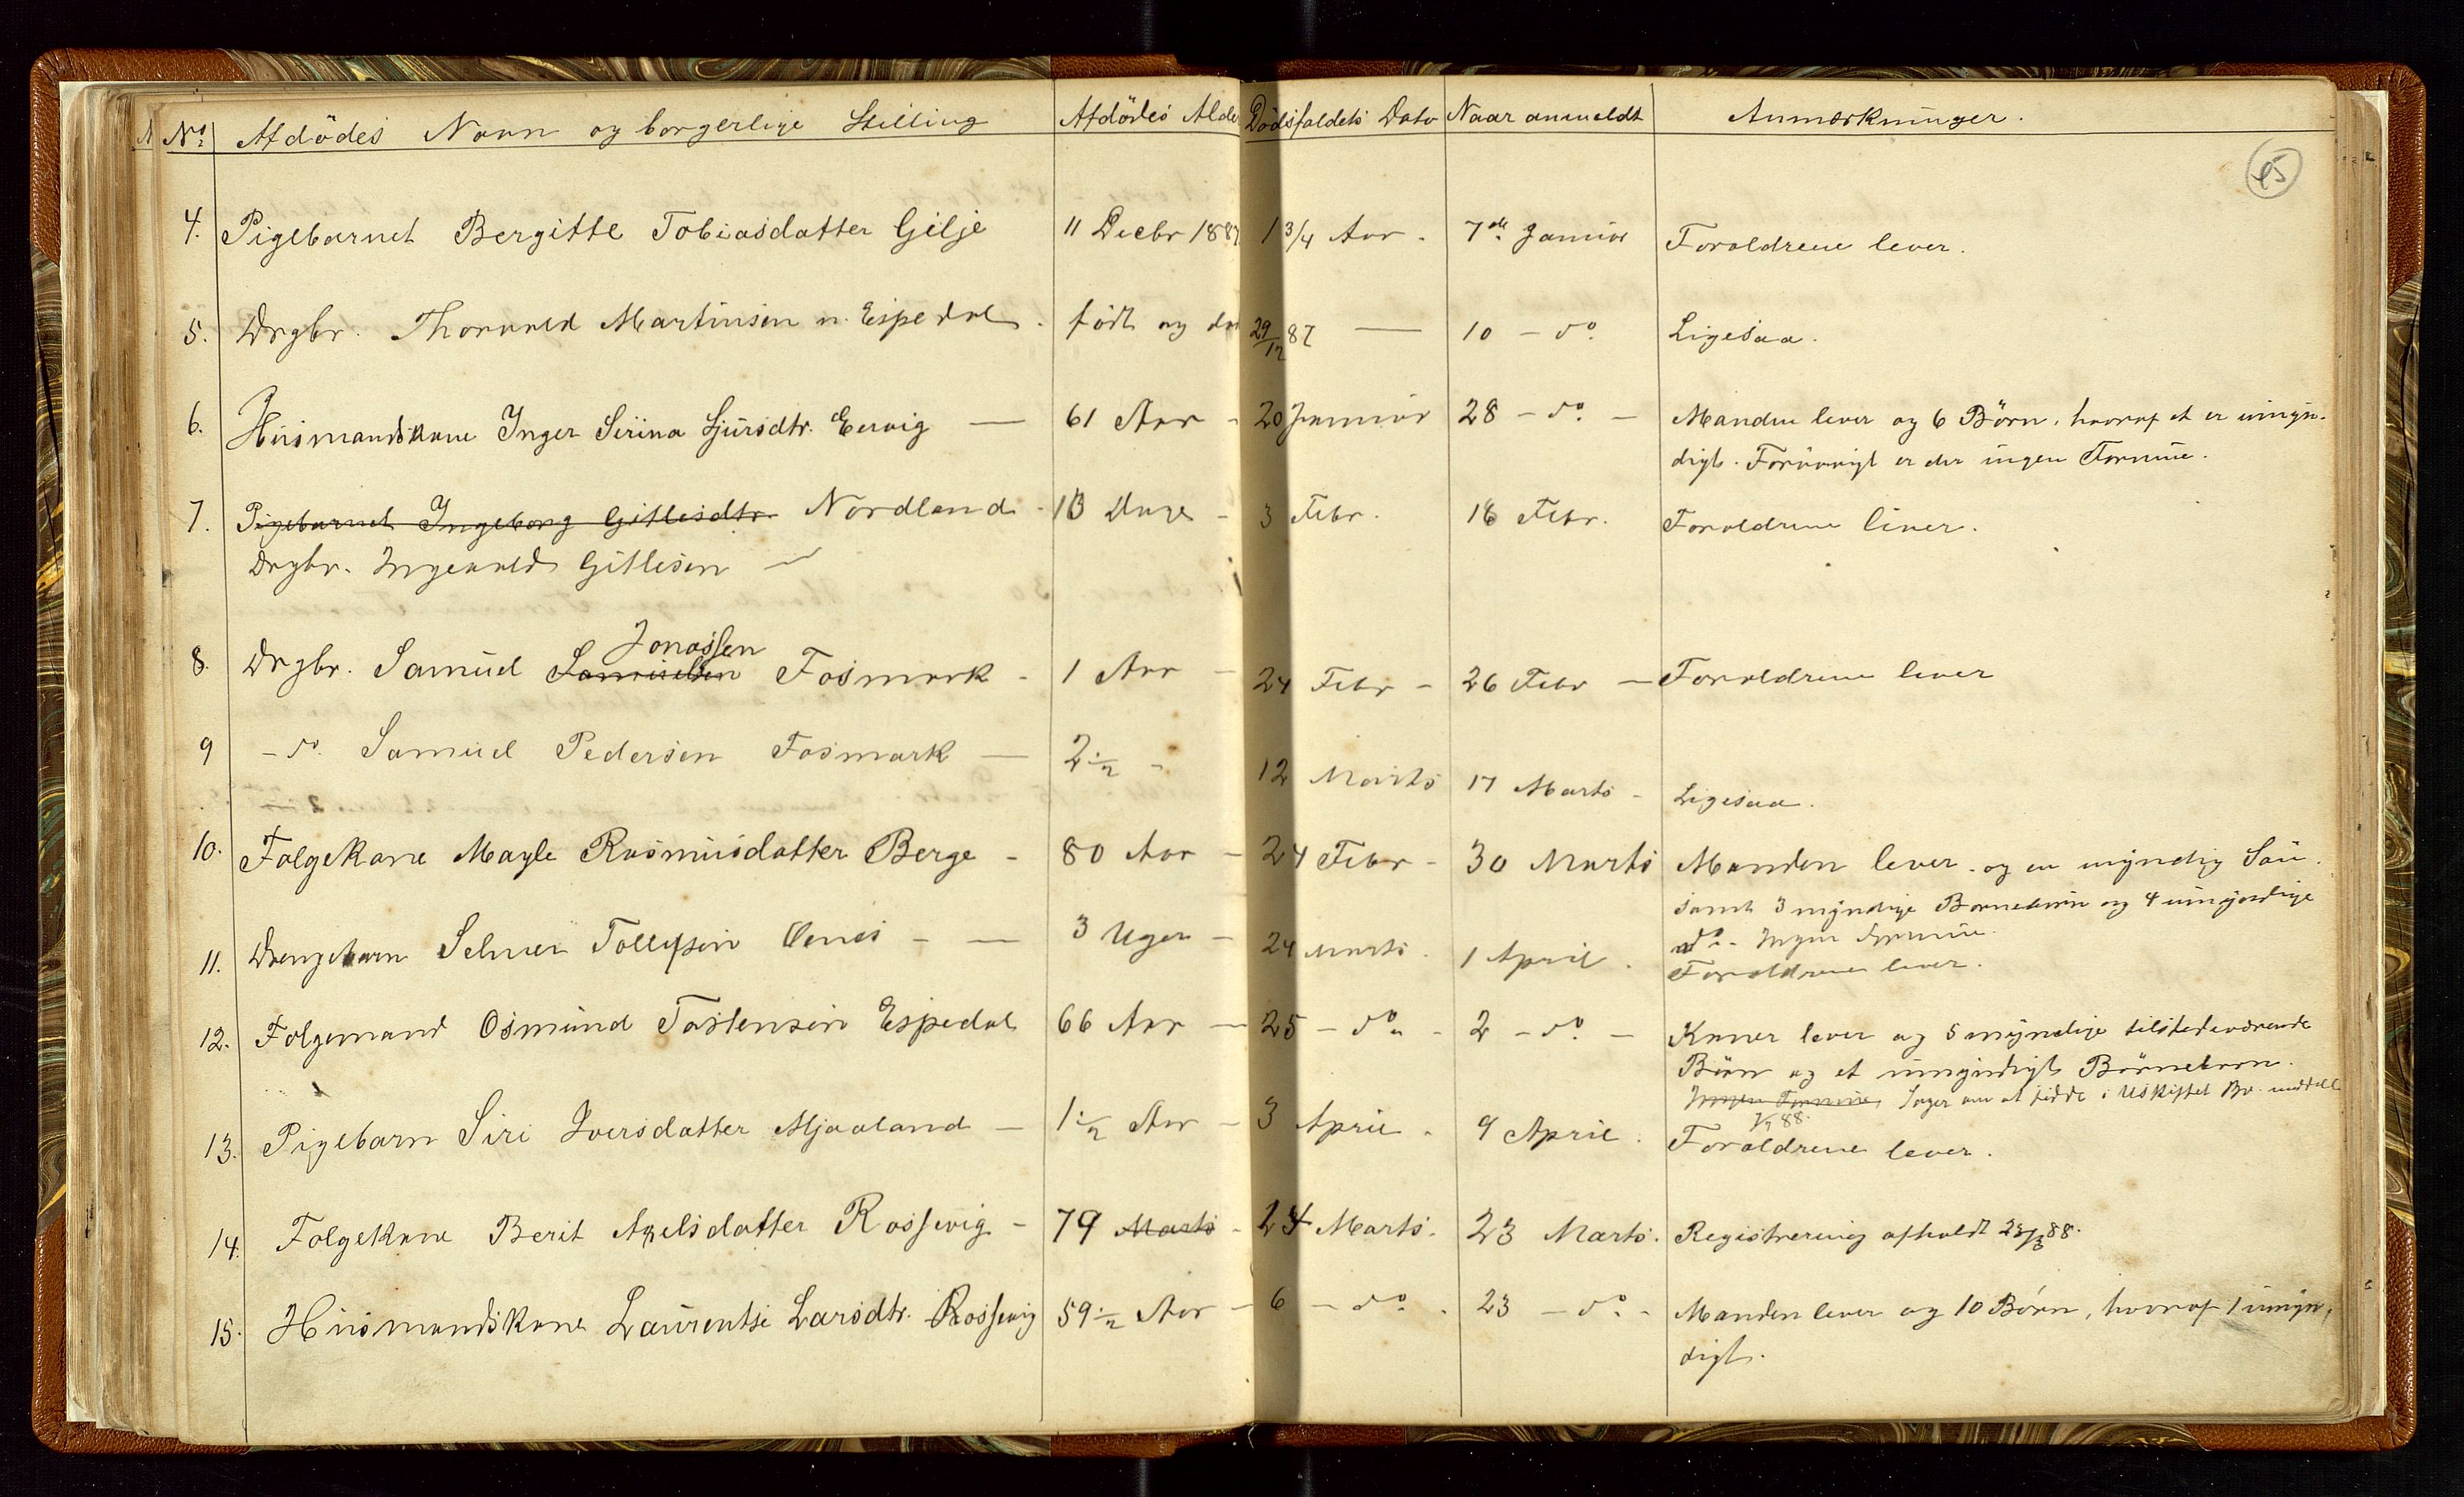 No. Afdödes Navn og borgerlige Stilling Afdödes Alder Dödsfaldets Dato Naar anmeldt Anmærkninger.
65
4. Pigebarnet Bergitte Tobiasdatter Gilje 11 Decbr 1887 1 3/4 Aar. 7de Januar Forældrene lever.
5. Drgbr. Thorvald Martinsen n. Espedal. født og død 29/12 87 — 10 - do. Ligesaa.
6. Husmandskone Inger Serina Sjursdtr. Eervig — 61 Aar - 20 Januar 28 - do. - Manden lever og 6 Börn, hvoraf et er umyn-
digt. Forövrigt er der ingen Formue.
7. Pigebarnet Ingeborg Gitlesdtr. Nordland - 13 Dage - 3 Febr. 16 Febr. Forældrene lever.
Drgbr. Ingevald Gitlesen —
Jonassen
8. Drgbr. Samuel Samuelsen Fosmark - 1 Aar - 24 Febr - 26 Febr — Forældrene lever
9 - do. Samuel Pedersen Fosmark — 2 1/2 - 12 Marts 17 Marts - Ligesaa.
10. Folgekone Magle Rasmusdatter Berge - 80 Aar - 24 Febr - 30 Marts Manden lever og en myndig Sön.
samt 3 myndige Börnebörn og 4 umyndige
do. - Ingen Formue.
11. Drengebarn Selmer Tollefsen Oenes - — 3 Uger - 24 Marts. 1 April. Forældrene lever.
12. Folgemand Osmund Tostensen Espedal 66 Aar — 25 - do. - 2 - do. - Konen lever og 5 myndige tilstedeværende
Börn og et umyndigt Börnebarn.
Ingen Formue, Söger om at sidde i Uskiftet Bo. meddelt
1/7 88.
13. Pigebarn Siri Iversdatter Mjaaland — 1 1/2 Aar - 3 April. 9 April. Forældrene lever.
14. Folgekone Berit Axelsdatter Rossevig - 79 Marts - 24 Marts. 23 Marts. Registrering afholdt 23/3 88.
15. Husmandskone Laurentse Larsdtr. Rossevig 59 1/2 Aar - 6 - do. - 23 - do. - Manden lever og 10 Börn, hvoraf 1 umyn-
digt.